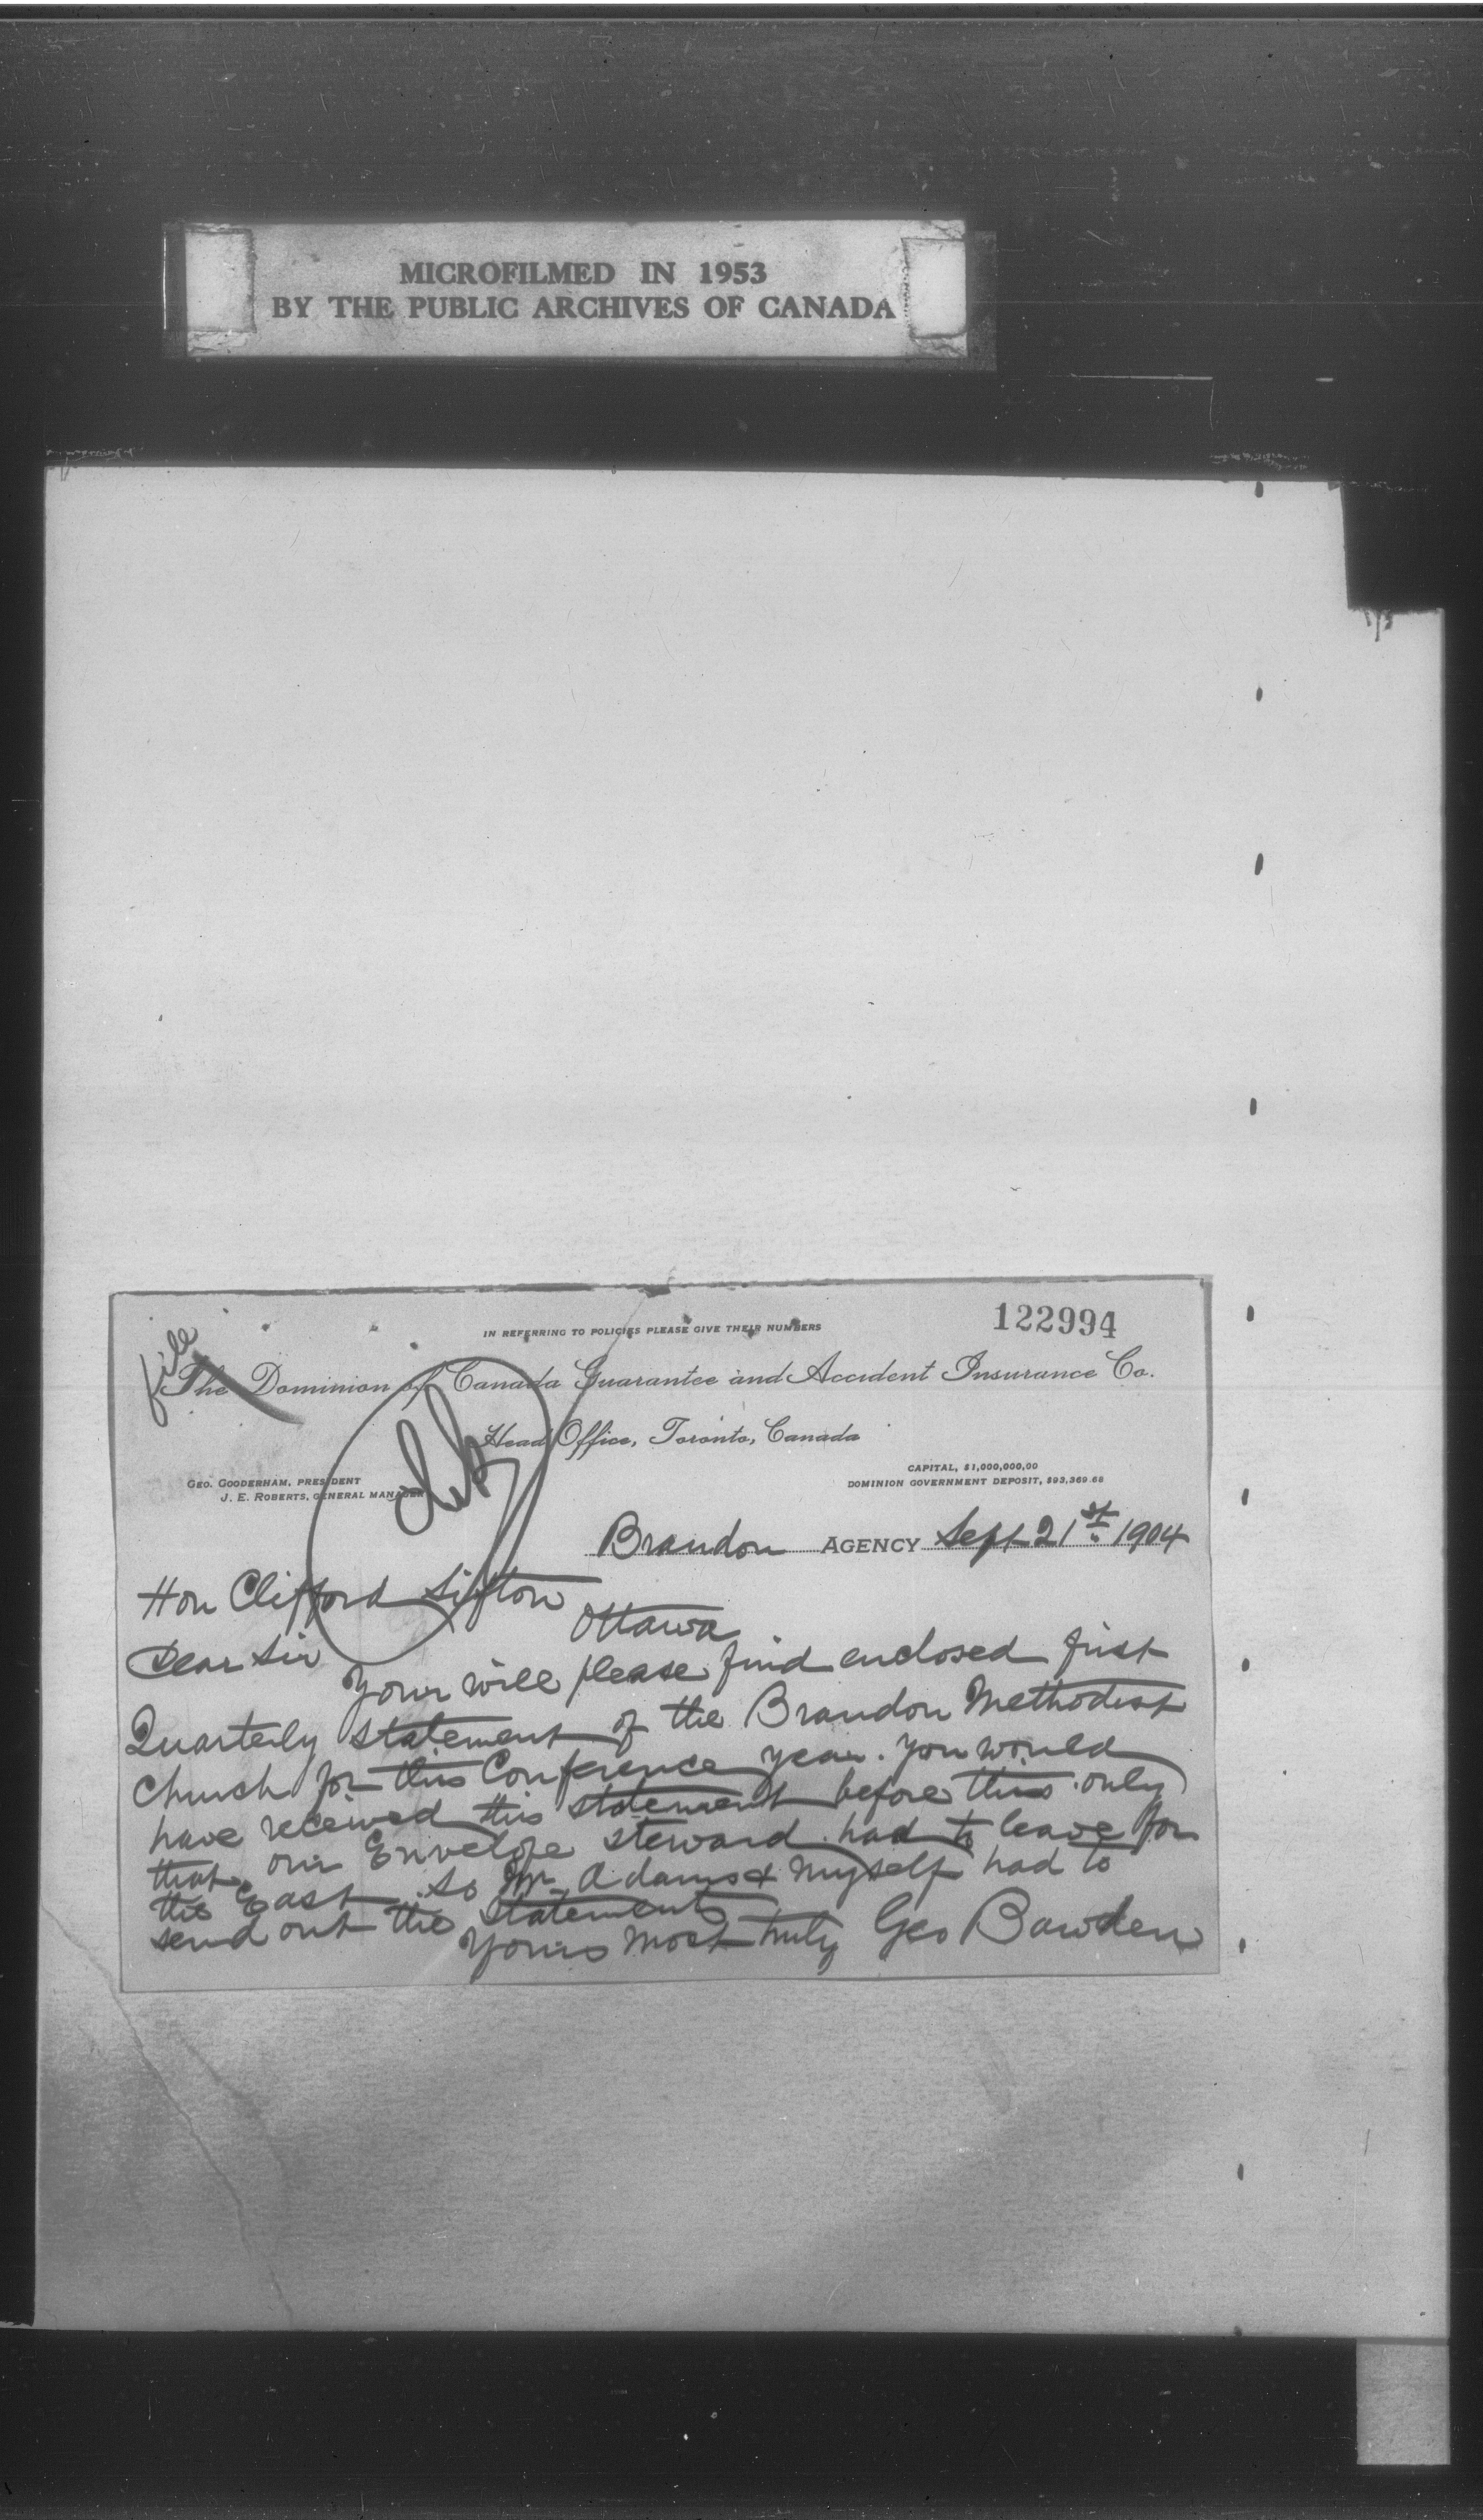 MICROFILMED IN 1953
BY THE PUBLIC ARCHIVES OF CANADA
122994
IN REFERRING TO POLICIES PLEASE GIVE THEIR NUMBERS
file
The Dominion of Canada Guarantee and Accident Insurance Co.
Head Office, Toronto, Canada
GEO. GOODERHAM, PRESIDENT
J. E. ROBERTS, GENERAL MANAGER
CAPITAL, $1,000,000,00
DOMINION GOVERNMENT DEPOSIT, $93,369.68
Brandon AGENCY Sept 21st 1904
Hon Clifford Sifton
Ottawa
Dear Sir
Your will please find enclosed first
Quarterly statement of the Brandon Methodist
Church for this Conference year. you would
have received this statement before this only
that our Envelope steward had to leave for
the East. so Mr Adams & myself had to
send out the statements
Yours most truly Geo Bawden